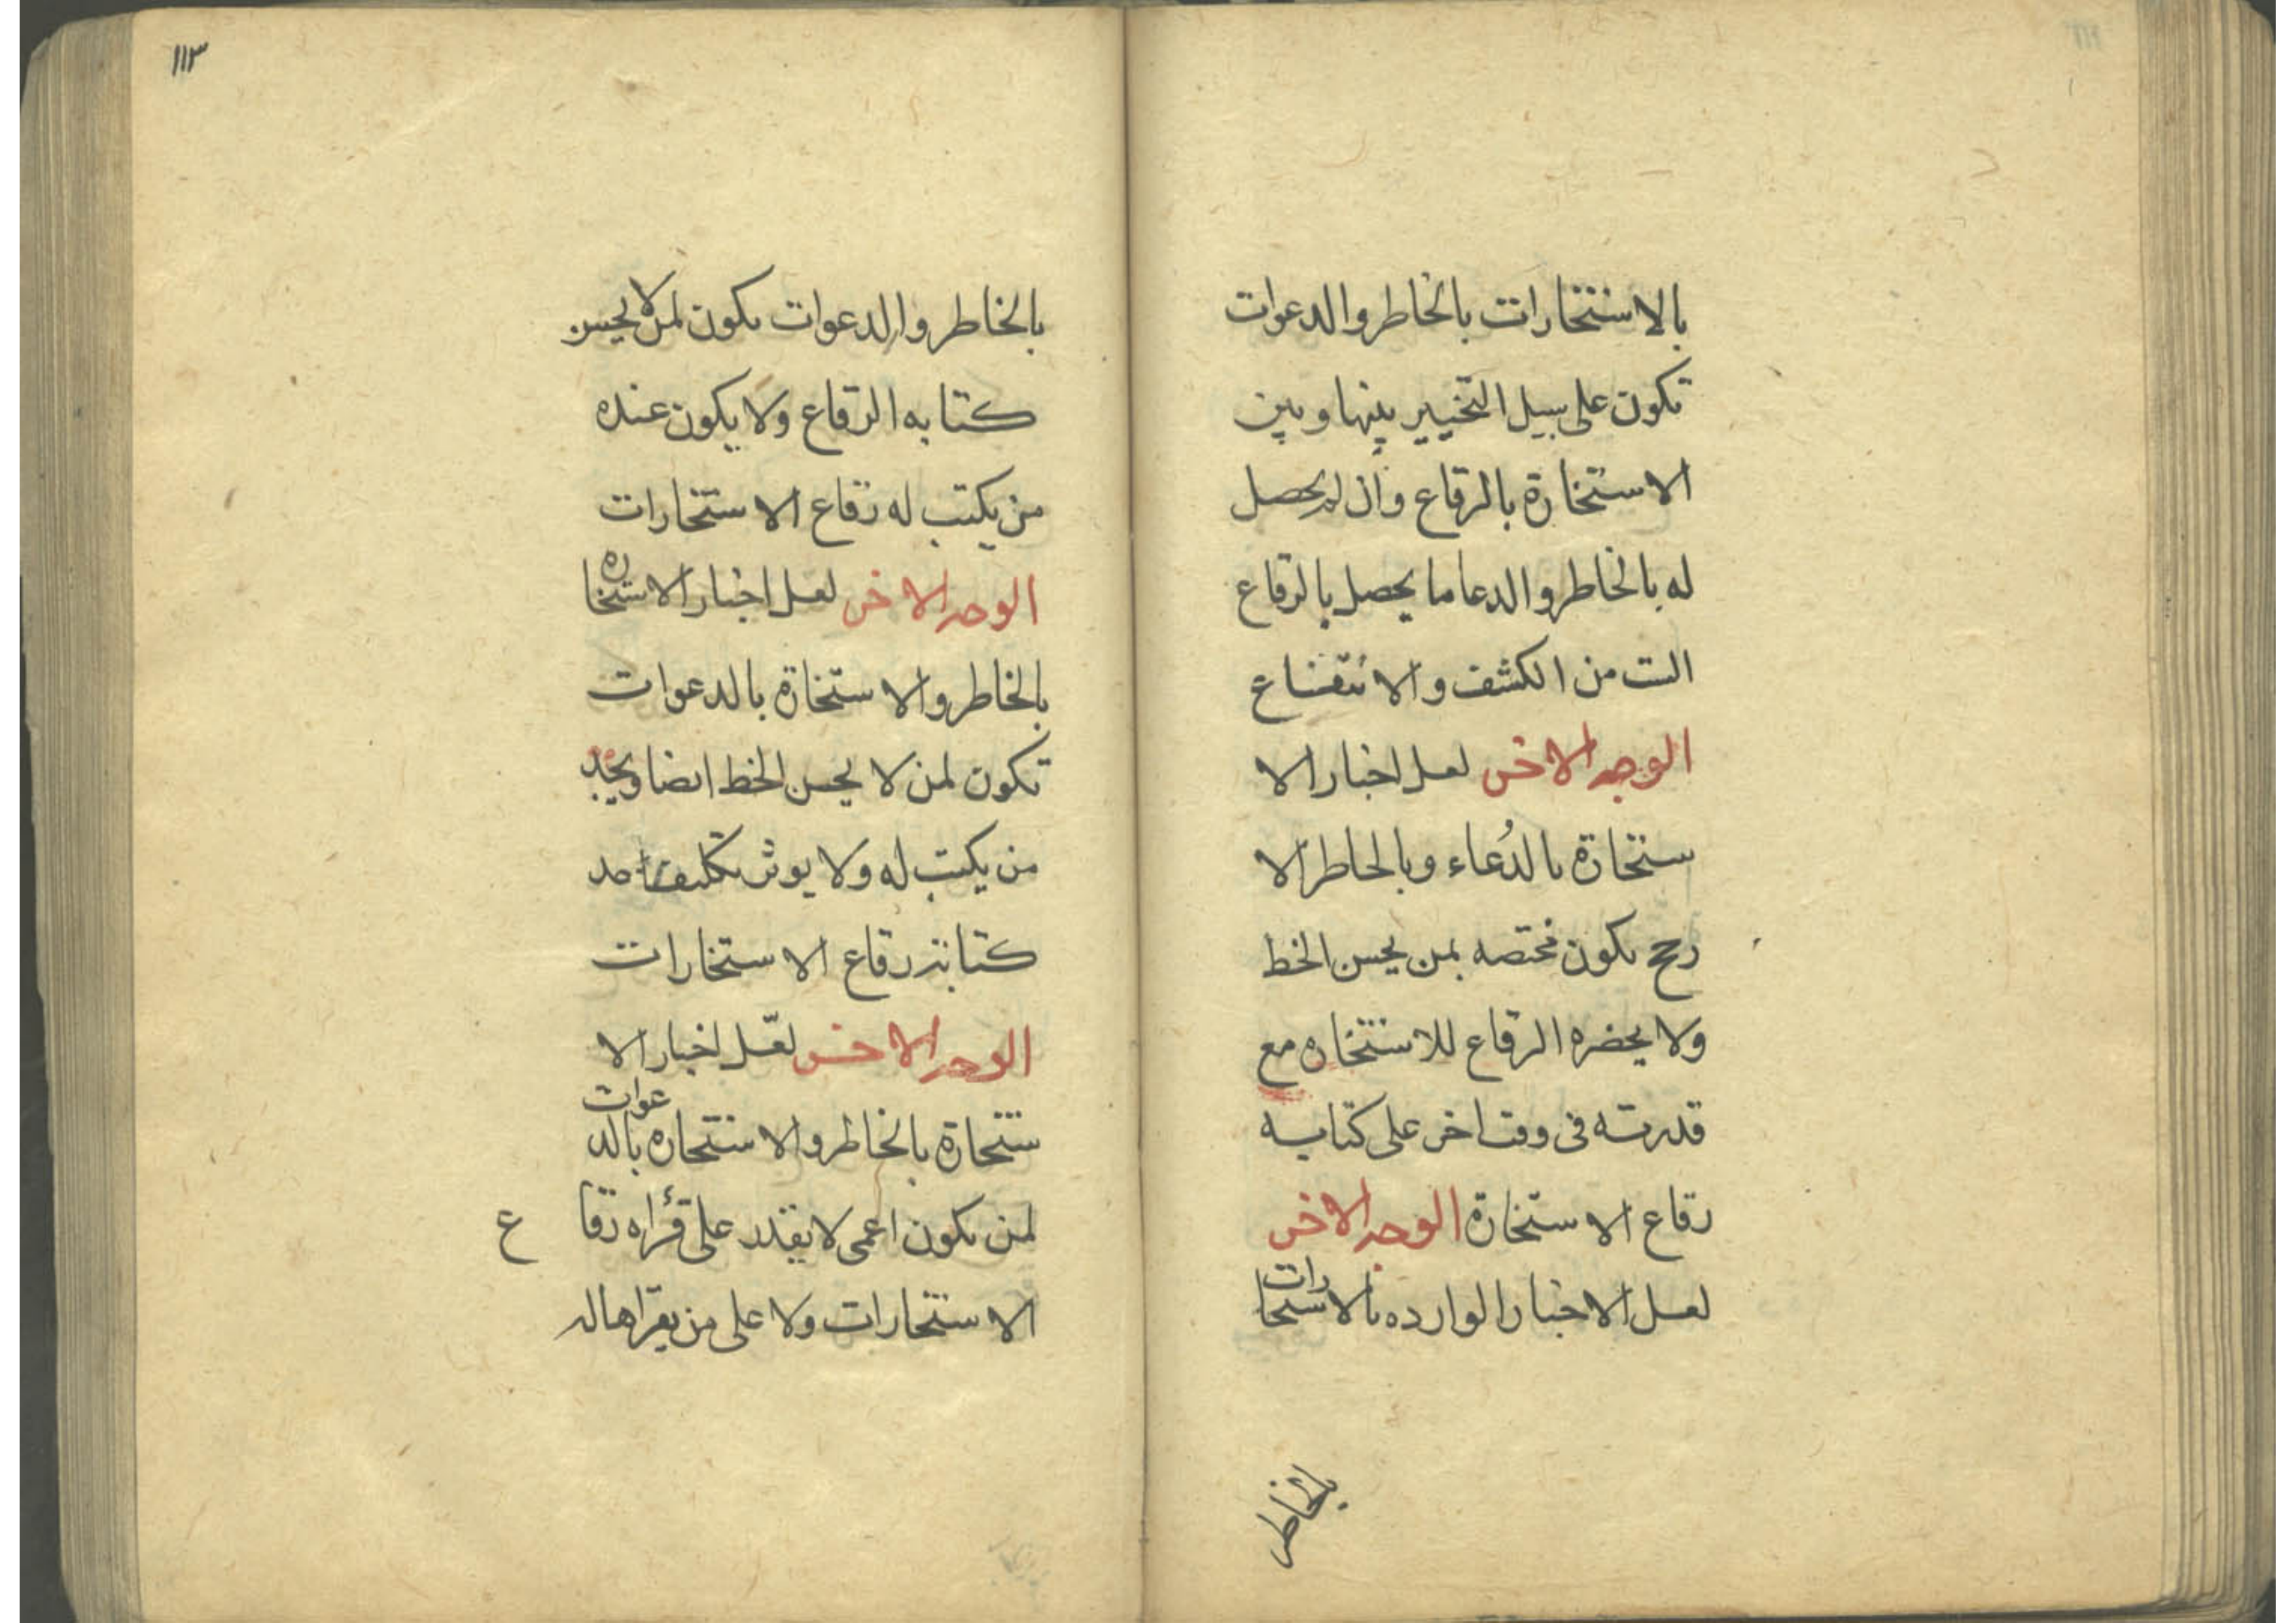 بالاستخارات بالخاطر والدعوات
تكون على سبيل التخيير بينها وبين
الاستخارة بالرقاع وان لم يحصل
له بالخاطر والدعا ما يحصل بالرقاع
الست من الكشف والانتفاع
الوجه الاخر لعل اخبار الا
ستخارة بالدُعاء وبالخاطر الا
رجح تكون مختصه بمن يحسن الخط
ولا يحضره الرقاع للاستخاره مع
قدرته فى وقت اخر على كتابه
رقاع الاستخارة الوجه الاخر
لعل الاخبار الوارده بالاستخارات
بالخاطر
١١٣
بالخاطر والدعوات تكون لمن لا يحسن
كتابه الرقاع ولا يكون عنده
من يكتب له رقاع الاستخارات
الوجه الاخر لعل اخبار الاستخاره
بالخاطر والاستخارة بالدعوات
تكون لمن لا يحسن الخط ايضا ويجد
من يكتب له ولا يوثر تكليف احد
كتابة رقاع الاستخارات
الوجه الاخر لعّل اخبار الا
ستخارة بالخاطر والاستخاره بالدعوات
لمن يكون اعمى لا يقدر على قرأه رقاع
الاستخارات ولا على من يقراها له